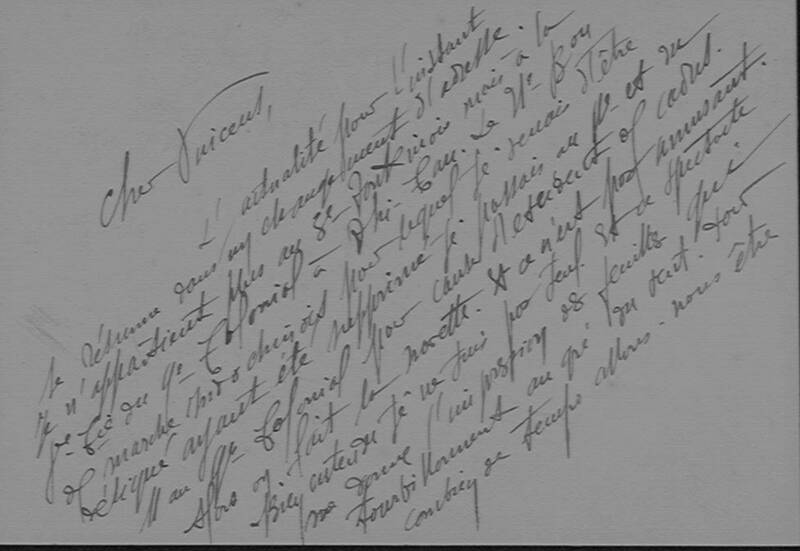 Cher Vincens,
L'actualité pour l'instant
se résume dans un changement d'adresse.
Je n'appartiens plus au 8e Tonkinois mais à la
Cie du 9e Colonial à Phi-
de marche indochinois pour lequel je venais d'être
désigné ayant été supprimé je passais au et du
11 au 9e Colonial pour cause d'excédent de cadres.
Alors on fait la navette. Et ce n'est pas amusant.
Bien entendu je ne suis pas seul et ce spectacle
me donne l'impression de feuilles qui
tourbillonnent au gré du vent. Pour
combien de temps allons-nous être